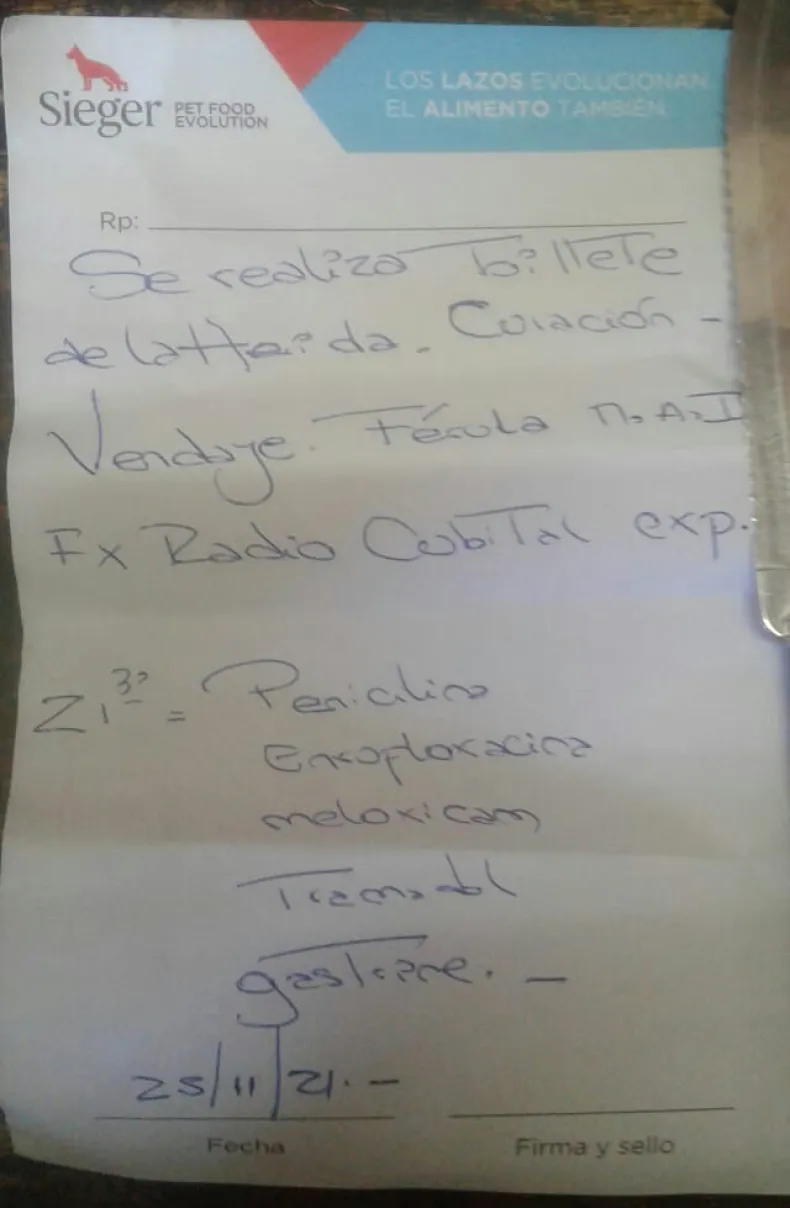 Sieger PET FOOD EVOLUTION
LOS LAZOS EVOLUCIONAN
EL ALIMENTO TAMBIÉN
Rp:
Se realiza
de la herida. Curación -
Vendaje. Férula M.A.I
Fx Radio Cubital exp.
Penicilina
Enrofloxacina
meloxicam
Tramadol
25/11/21.-
Fecha
Firma y sello